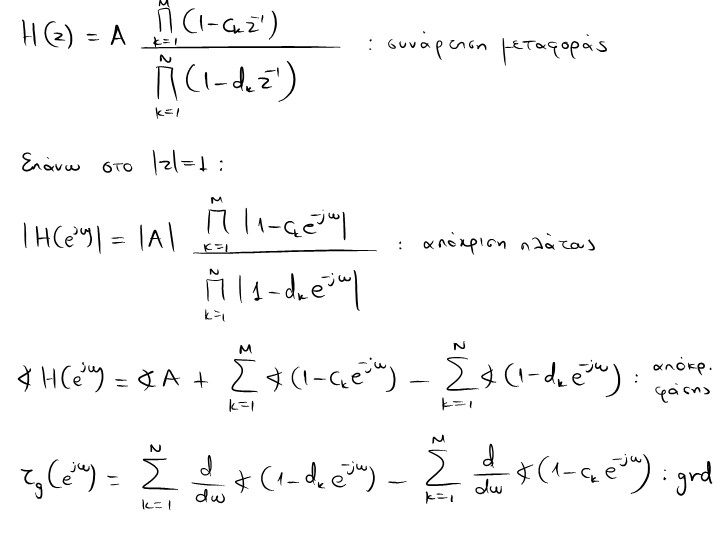 H(z) = A \frac{\prod_{k=1}^{M} (1-c_k z^{-1})}{\prod_{k=1}^{N} (1-d_k z^{-1})} : συνάρτηση μεταφοράς
Επάνω στο |z|=1 :
|H(e^{jω})| = |A| \frac{\prod_{k=1}^{M} |1-c_k e^{-jω}|}{\prod_{k=1}^{N} |1-d_k e^{-jω}|} : απόκριση πλάτους
∢H(e^{jω}) = ∢A + \sum_{k=1}^{M} ∢(1-c_k e^{-jω}) - \sum_{k=1}^{N} ∢(1-d_k e^{-jω}) : απόκρ. φάσης
τ_g(e^{jω}) = \sum_{k=1}^{N} \frac{d}{dω} ∢(1-d_k e^{-jω}) - \sum_{k=1}^{M} \frac{d}{dω} ∢(1-c_k e^{-jω}) : grd